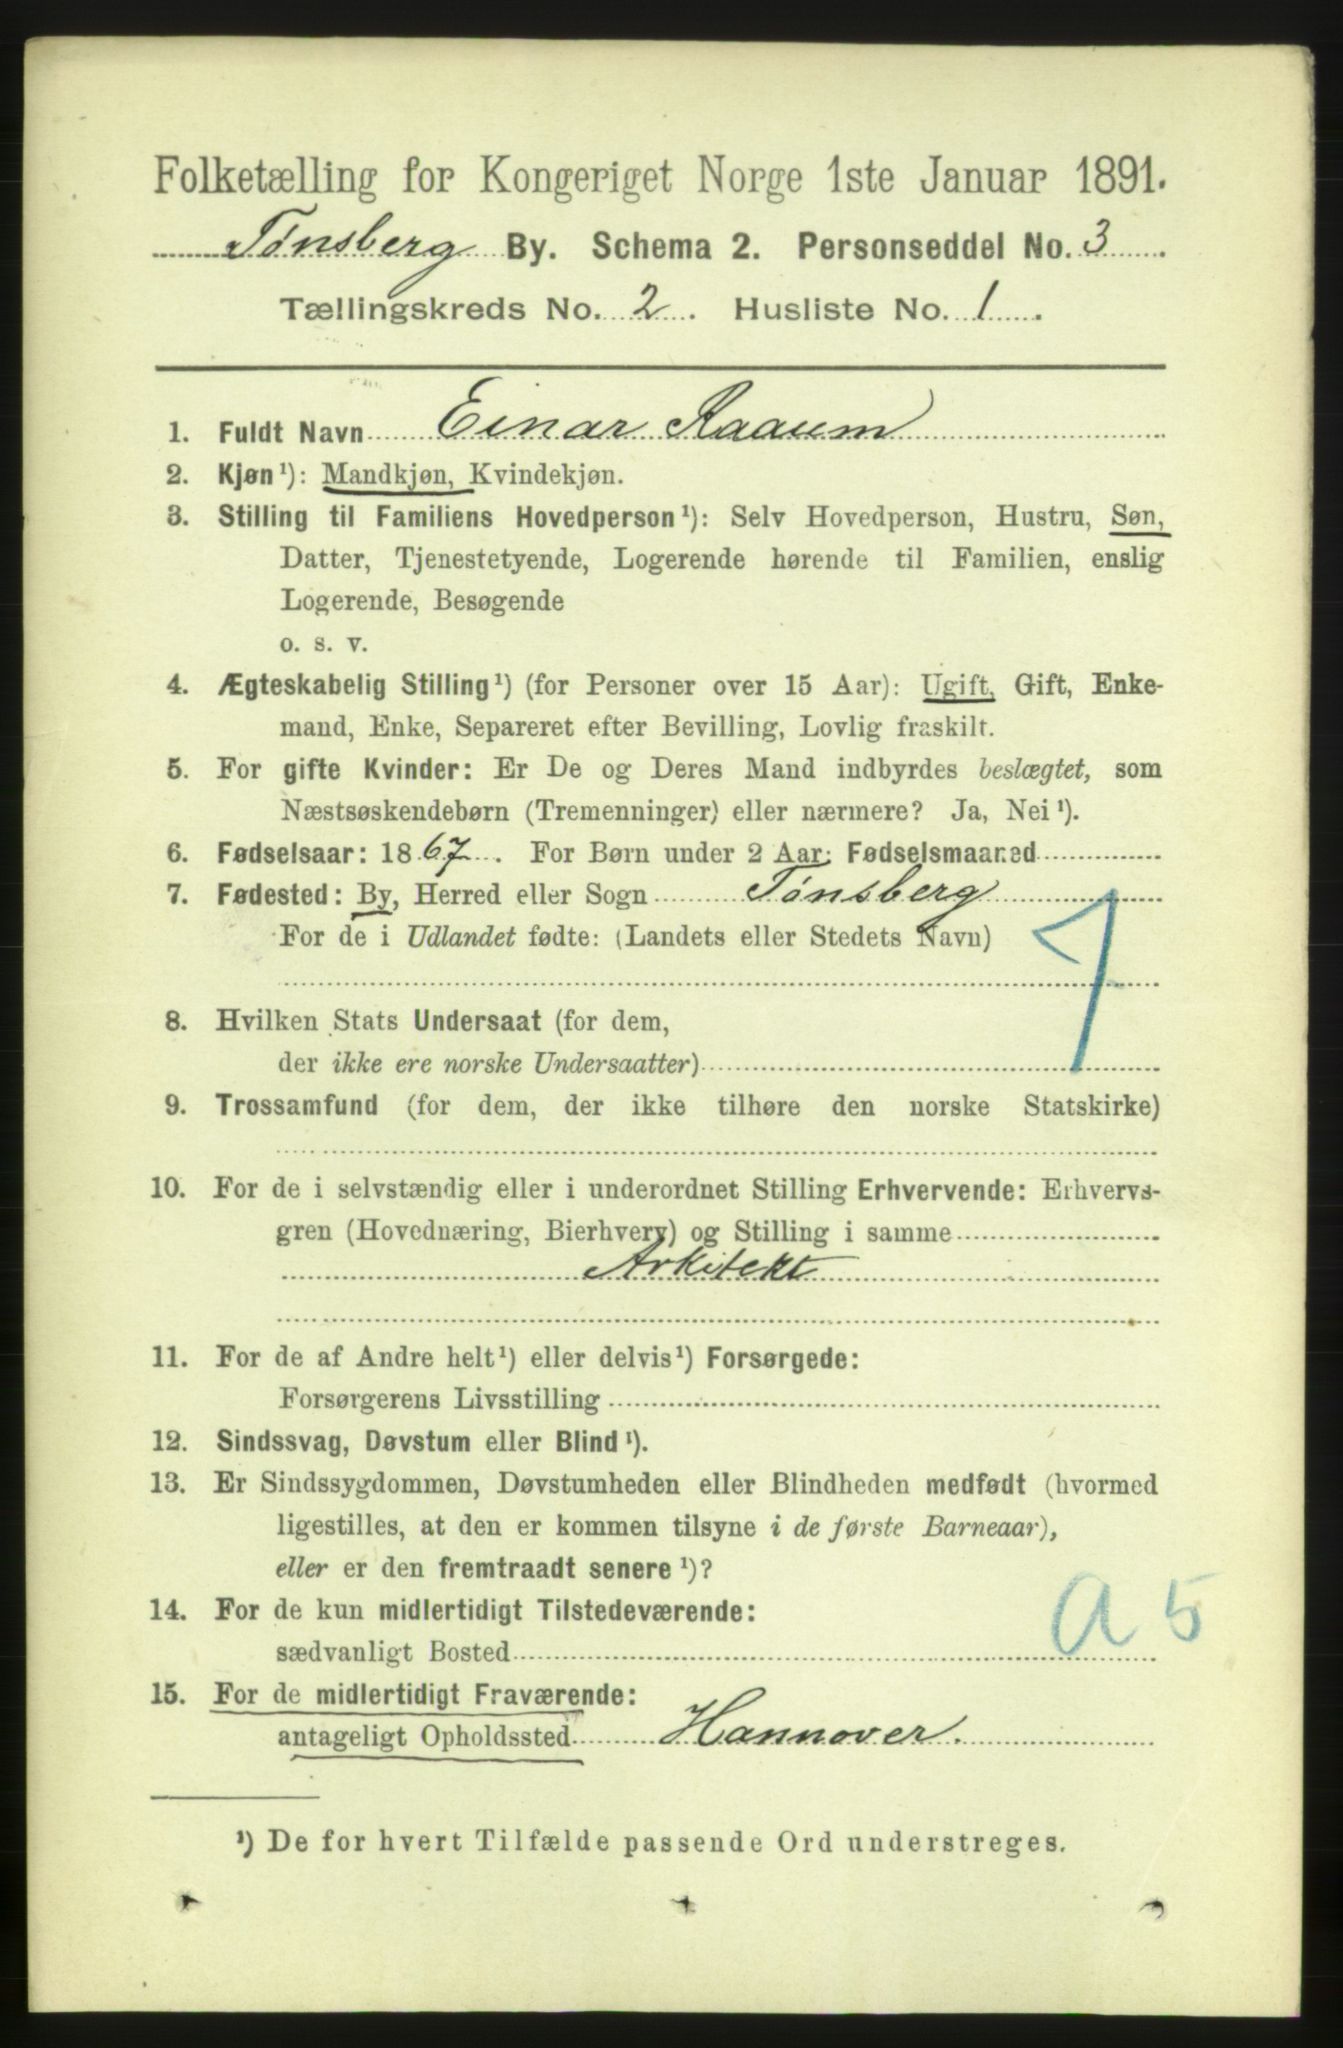 Folketælling for Kongeriget Norge 1ste Januar 1891.
Tønsberg By. Schema 2. Personseddel No. 3
Tællingskreds No. 2. Husliste No. 1.
1. Fuldt Navn Einar Raaum
2. Kjøn¹): Mandkjøn, Kvindekjøn.
3. Stilling til Familiens Hovedperson¹): Selv Hovedperson, Hustru, Søn,
Datter, Tjenestetyende, Logerende hørende til Familien, enslig
Logerende, Besøgende
o. s. v.
4. Ægteskabelig Stilling¹) (for Personer over 15 Aar): Ugift, Gift, Enke-
mand, Enke, Separeret efter Bevilling, Lovlig fraskilt.
5. For gifte Kvinder: Er De og Deres Mand indbyrdes beslægtet, som
Næstsøskendebørn (Tremenninger) eller nærmere? Ja, Nei¹).
6. Fødselsaar: 1867. For Børn under 2 Aar: Fødselsmaaned
7. Fødested: By, Herred eller Sogn Tønsberg
For de i Udlandet fødte: (Landets eller Stedets Navn)
8. Hvilken Stats Undersaat (for dem,
der ikke ere norske Undersaatter)
9. Trossamfund (for dem, der ikke tilhøre den norske Statskirke)
10. For de i selvstændig eller i underordnet Stilling Erhvervende: Erhvervs-
gren (Hovednæring, Bierhverv) og Stilling i samme
Arkitekt
11. For de af Andre helt¹) eller delvis¹) Forsørgede:
Forsørgerens Livsstilling
12. Sindssvag, Døvstum eller Blind¹).
13. Er Sindssygdommen, Døvstumheden eller Blindheden medfødt (hvormed
ligestilles, at den er kommen tilsyne i de første Barneaar),
eller er den fremtraadt senere¹)?
14. For de kun midlertidigt Tilstedeværende:
sædvanligt Bosted
a 5
15. For de midlertidigt Fraværende:
antageligt Opholdssted Hannover.
¹) De for hvert Tilfælde passende Ord understreges.